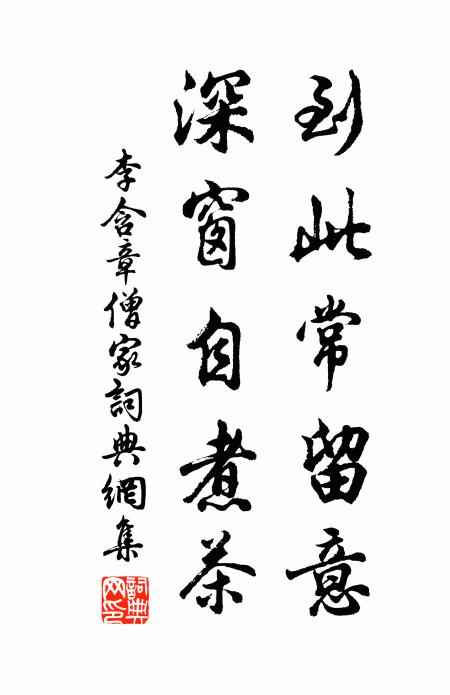 到此常留意
深窗自煮茶
李含章僧家詞典網集
詞典網印